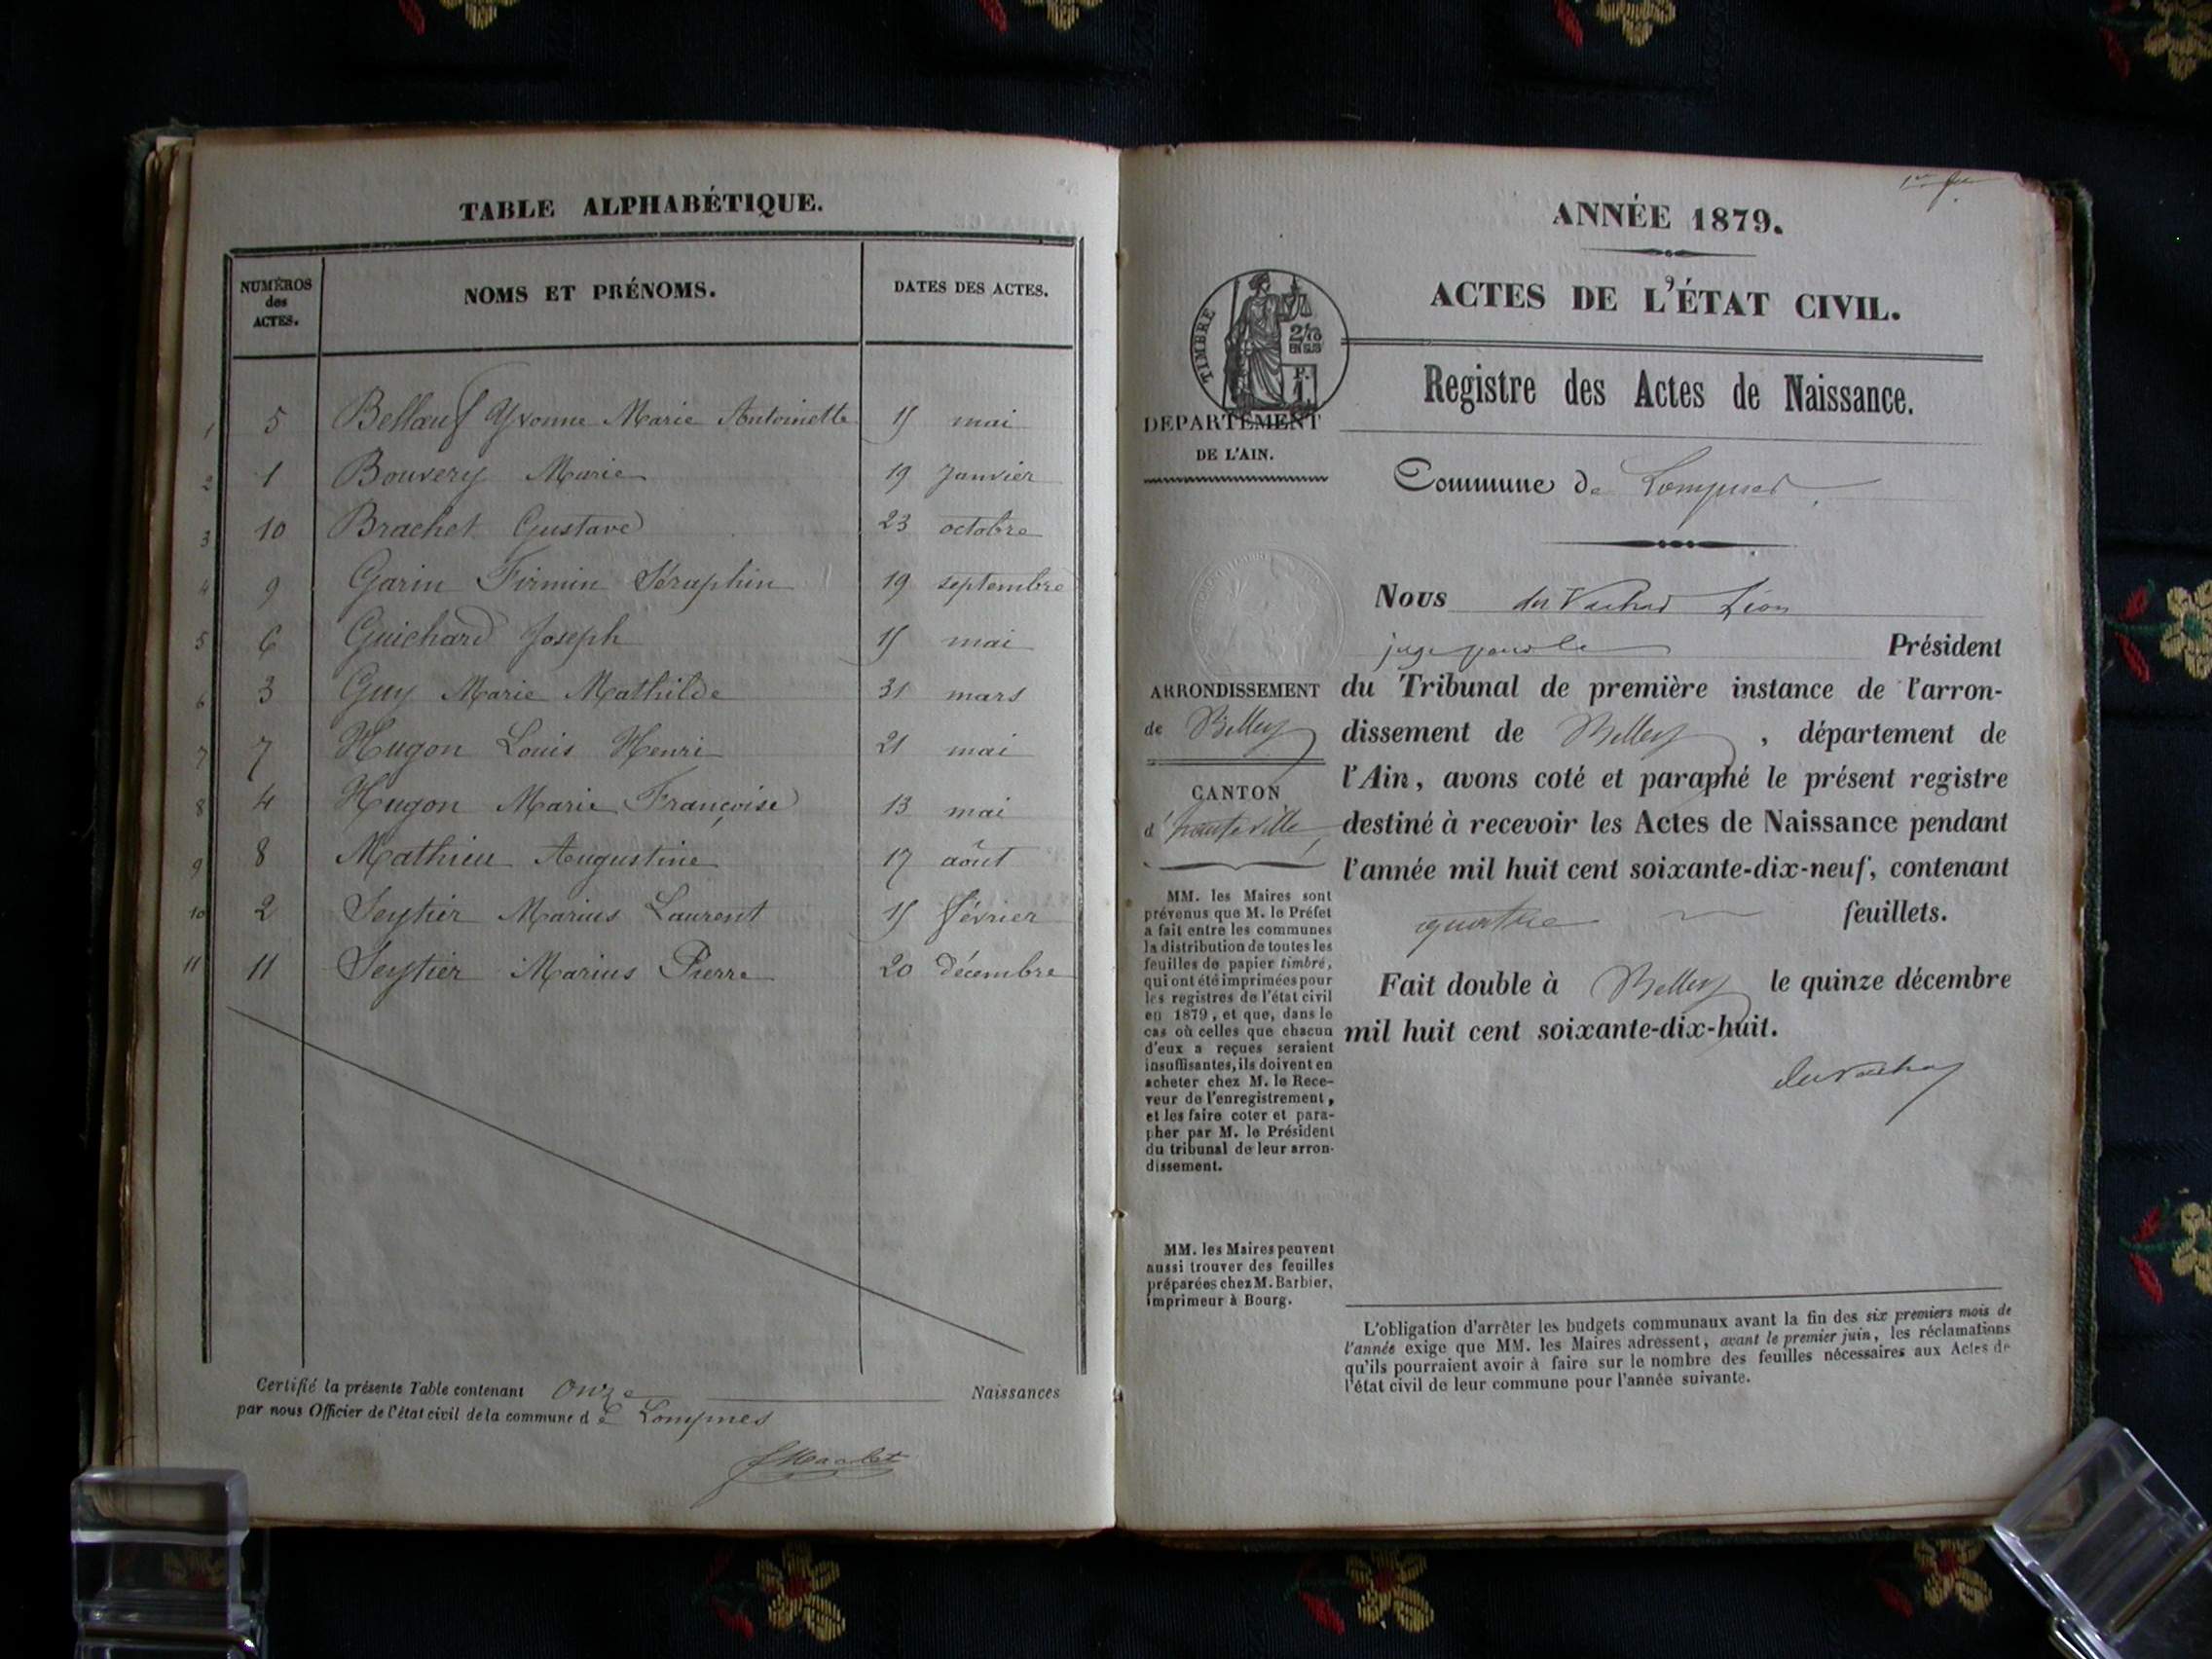 TABLE ALPHABÉTIQUE.
NUMÉROS des ACTES. NOMS ET PRÉNOMS. DATES DES ACTES.
1 5 Yvonne Marie Antoinette 15 mai
2 1 Bouvery Marie 19 Janvier
3 10 Brachet Gustave 23 octobre
4 9 Garin Firmin Séraphin 19 septembre
5 6 Guichard Joseph 15 mai
6 3 Guy Marie Mathilde 31 mars
7 7 Hugon Louis Henri 21 mai
8 4 Hugon Marie Françoise 13 mai
9 8 Mathieu Augustine 17 août
10 2 Seytier Marius Laurent 15 février
11 11 Seytier Marius Pierre 20 décembre
Certifié la présente Table contenant Onze Naissances
par nous Officier de l'état civil de la commune de Lompnes
ANNÉE 1879.
ACTES DE L'ÉTAT CIVIL.
TIMBRE
2/10
EN SUS
F.
1.
Registre des Actes de Naissance.
DEPARTEMENT
DE L'AIN.
Commune de Lompnes
Nous Léon
juge pour le Président
ARRONDISSEMENT
de Belley
CANTON
d'hauteville
du Tribunal de première instance de l'arron-
dissement de Belley, département de
l'Ain, avons coté et paraphé le présent registre
destiné à recevoir les Actes de Naissance pendant
l'année mil huit cent soixante-dix-neuf, contenant
quatre feuillets.
Fait double à Belley le quinze décembre
mil huit cent soixante-dix-huit.
MM. les Maires sont
prévenus que M. le Préfet
a fait entre les communes
la distribution de toutes les
feuilles de papier timbré,
qui ont été imprimées pour
les registres de l'état civil
en 1879, et que, dans le
cas où celles que chacun
d'eux a reçues seraient
insuffisantes, ils doivent en
acheter chez M. le Rece-
veur de l'enregistrement,
et les faire coter et para-
pher par M. le Président
du tribunal de leur arron-
dissement.
MM. les Maires peuvent
aussi trouver des feuilles
préparées chez M. Barbier,
imprimeur à Bourg.
L'obligation d'arrêter les budgets communaux avant la fin des six premiers mois de
l'année exige que MM. les Maires adressent, avant le premier juin, les réclamations
qu'ils pourraient avoir à faire sur le nombre des feuilles nécessaires aux Actes de
l'état civil de leur commune pour l'année suivante.